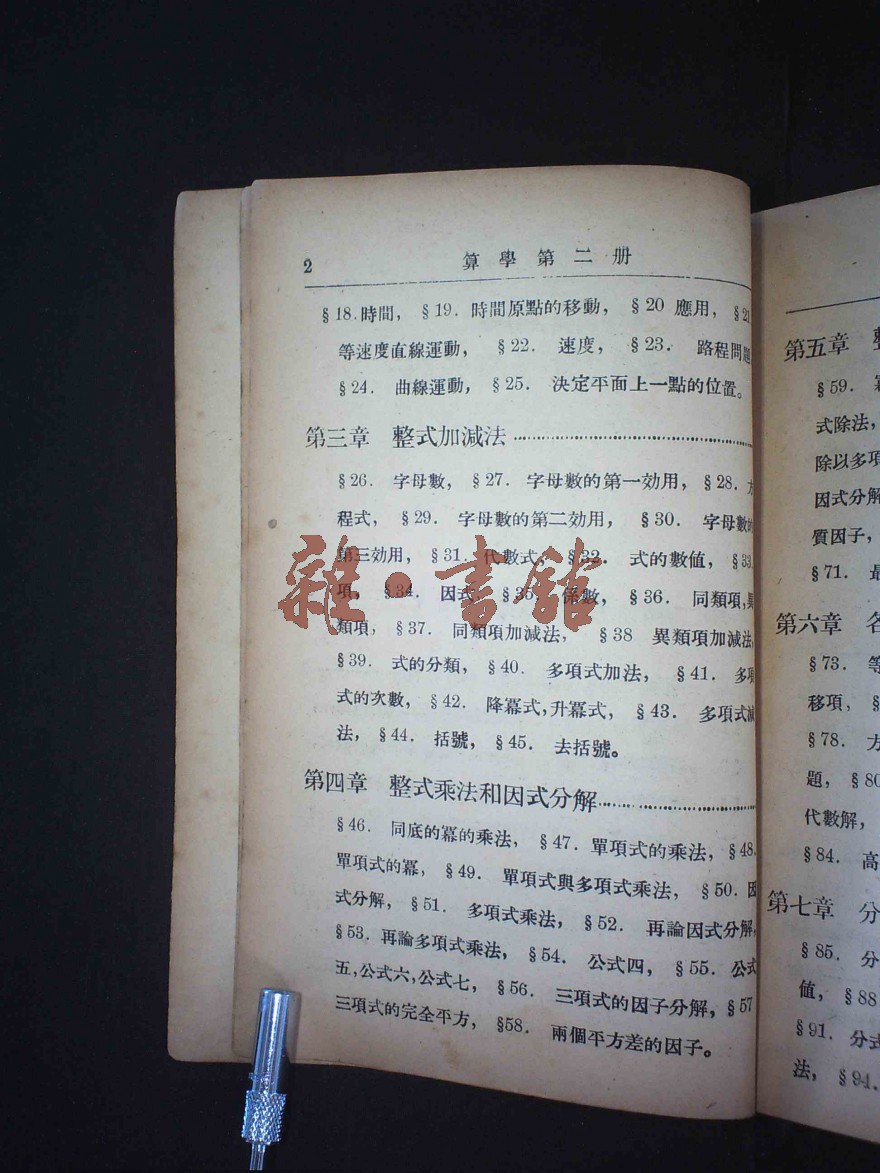 2 算學第二册
§18.時間， §19. 時間原點的移動， §20 應用， §21
等速度直線運動， §22. 速度， §23. 路程問題
§24. 曲線運動， §25. 決定平面上一點的位置。
第三章 整式加減法
§26. 字母數， §27. 字母數的第一効用， §28. 方
程式， §29. 字母數的第二効用， §30. 字母數的
第三効用， §31. 代數式， §32. 式的數值， §33.
項， §34. 因式， §35. 係數， §36. 同類項,異
類項， §37. 同類項加減法， §38 異類項加減法,
§39. 式的分類， §40. 多項式加法， §41. 多項
式的次數， §42. 降冪式,升冪式， §43. 多項式減
法， §44. 括號， §45. 去括號。
第四章 整式乘法和因式分解
§46. 同底的冪的乘法， §47. 單項式的乘法， §48.
單項式的冪， §49. 單項式與多項式乘法， §50. 因
式分解， §51. 多項式乘法， §52. 再論因式分解,
§53. 再論多項式乘法， §54. 公式四， §55. 公式
五,公式六,公式七， §56. 三項式的因子分解, §57
三項式的完全平方， §58. 兩個平方差的因子。
雜·書館
第五章
§59.
式除法，
除以多項
因式分解
質因子，
§71.
第六章
§73. 等
移項， §
§78. 方
題， §80
代數解，
§84. 高
第七章 分
§85. 分
值， §88
§91. 分式
法， §94.